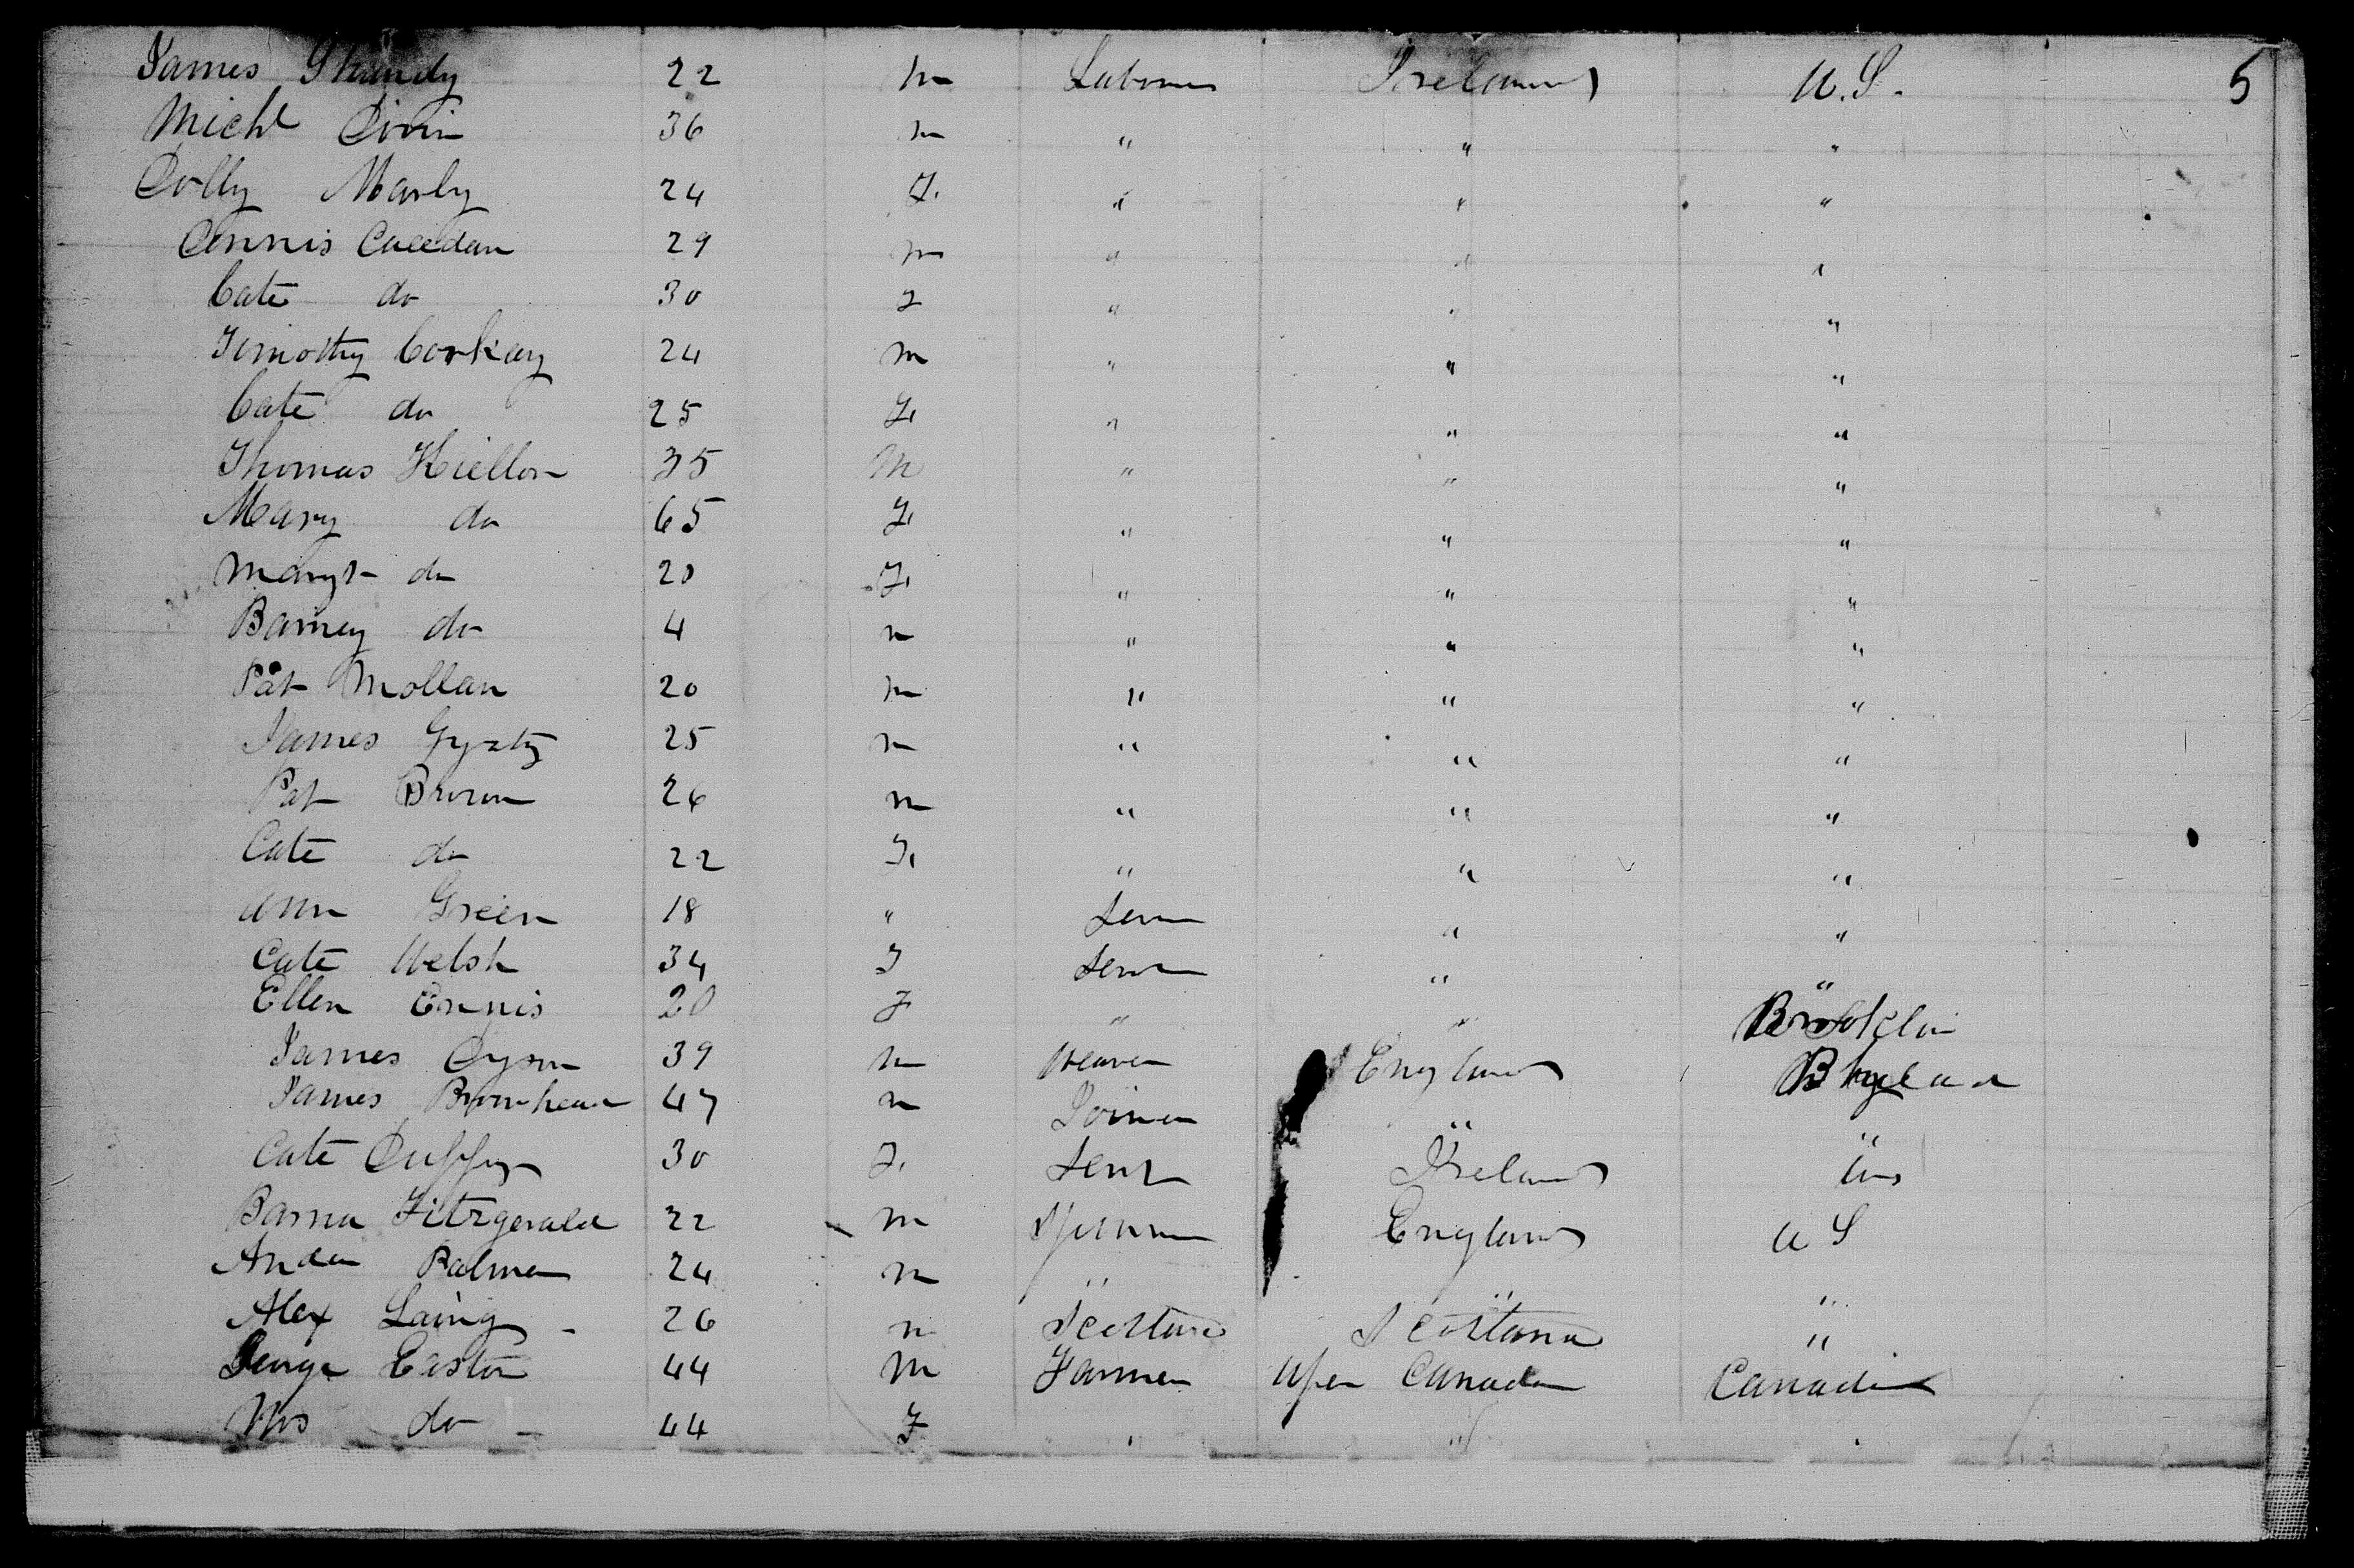 James 22 m Laborer Ireland U.S. 5
Michl Divin 36 m " " "
Dolly Marly 24 F. " " "
Dennis 29 m " " "
Cate do 30 F " " "
Timothy Corkay 24 m " " "
Cate do 25 F. " " "
Thomas Hiellon 35 M " " "
Mary do 65 F. " " "
Margt do 20 F. " " "
Barney do 4 m " " "
Pat Mollan 20 m " " "
James 25 m " " "
Pat Brown 26 m " " "
Cate do 22 F. " " "
Ann Green 18 " Serv " "
Cate Welsh 34 F Servt " "
Ellen Ennis 20 F " " Brooklin
James Dyson 39 m Weaver England
James 47 m Joiner " "
Cate Duffy 30 F. Servt Ireland
Barna Fitzgerald 22 m England U S
Palmer 24 m " " "
Alex Laing 26 m Scotland Scotland "
George Easton 44 M Farmer Uper Canada Canada
Mrs do 44 F " " "